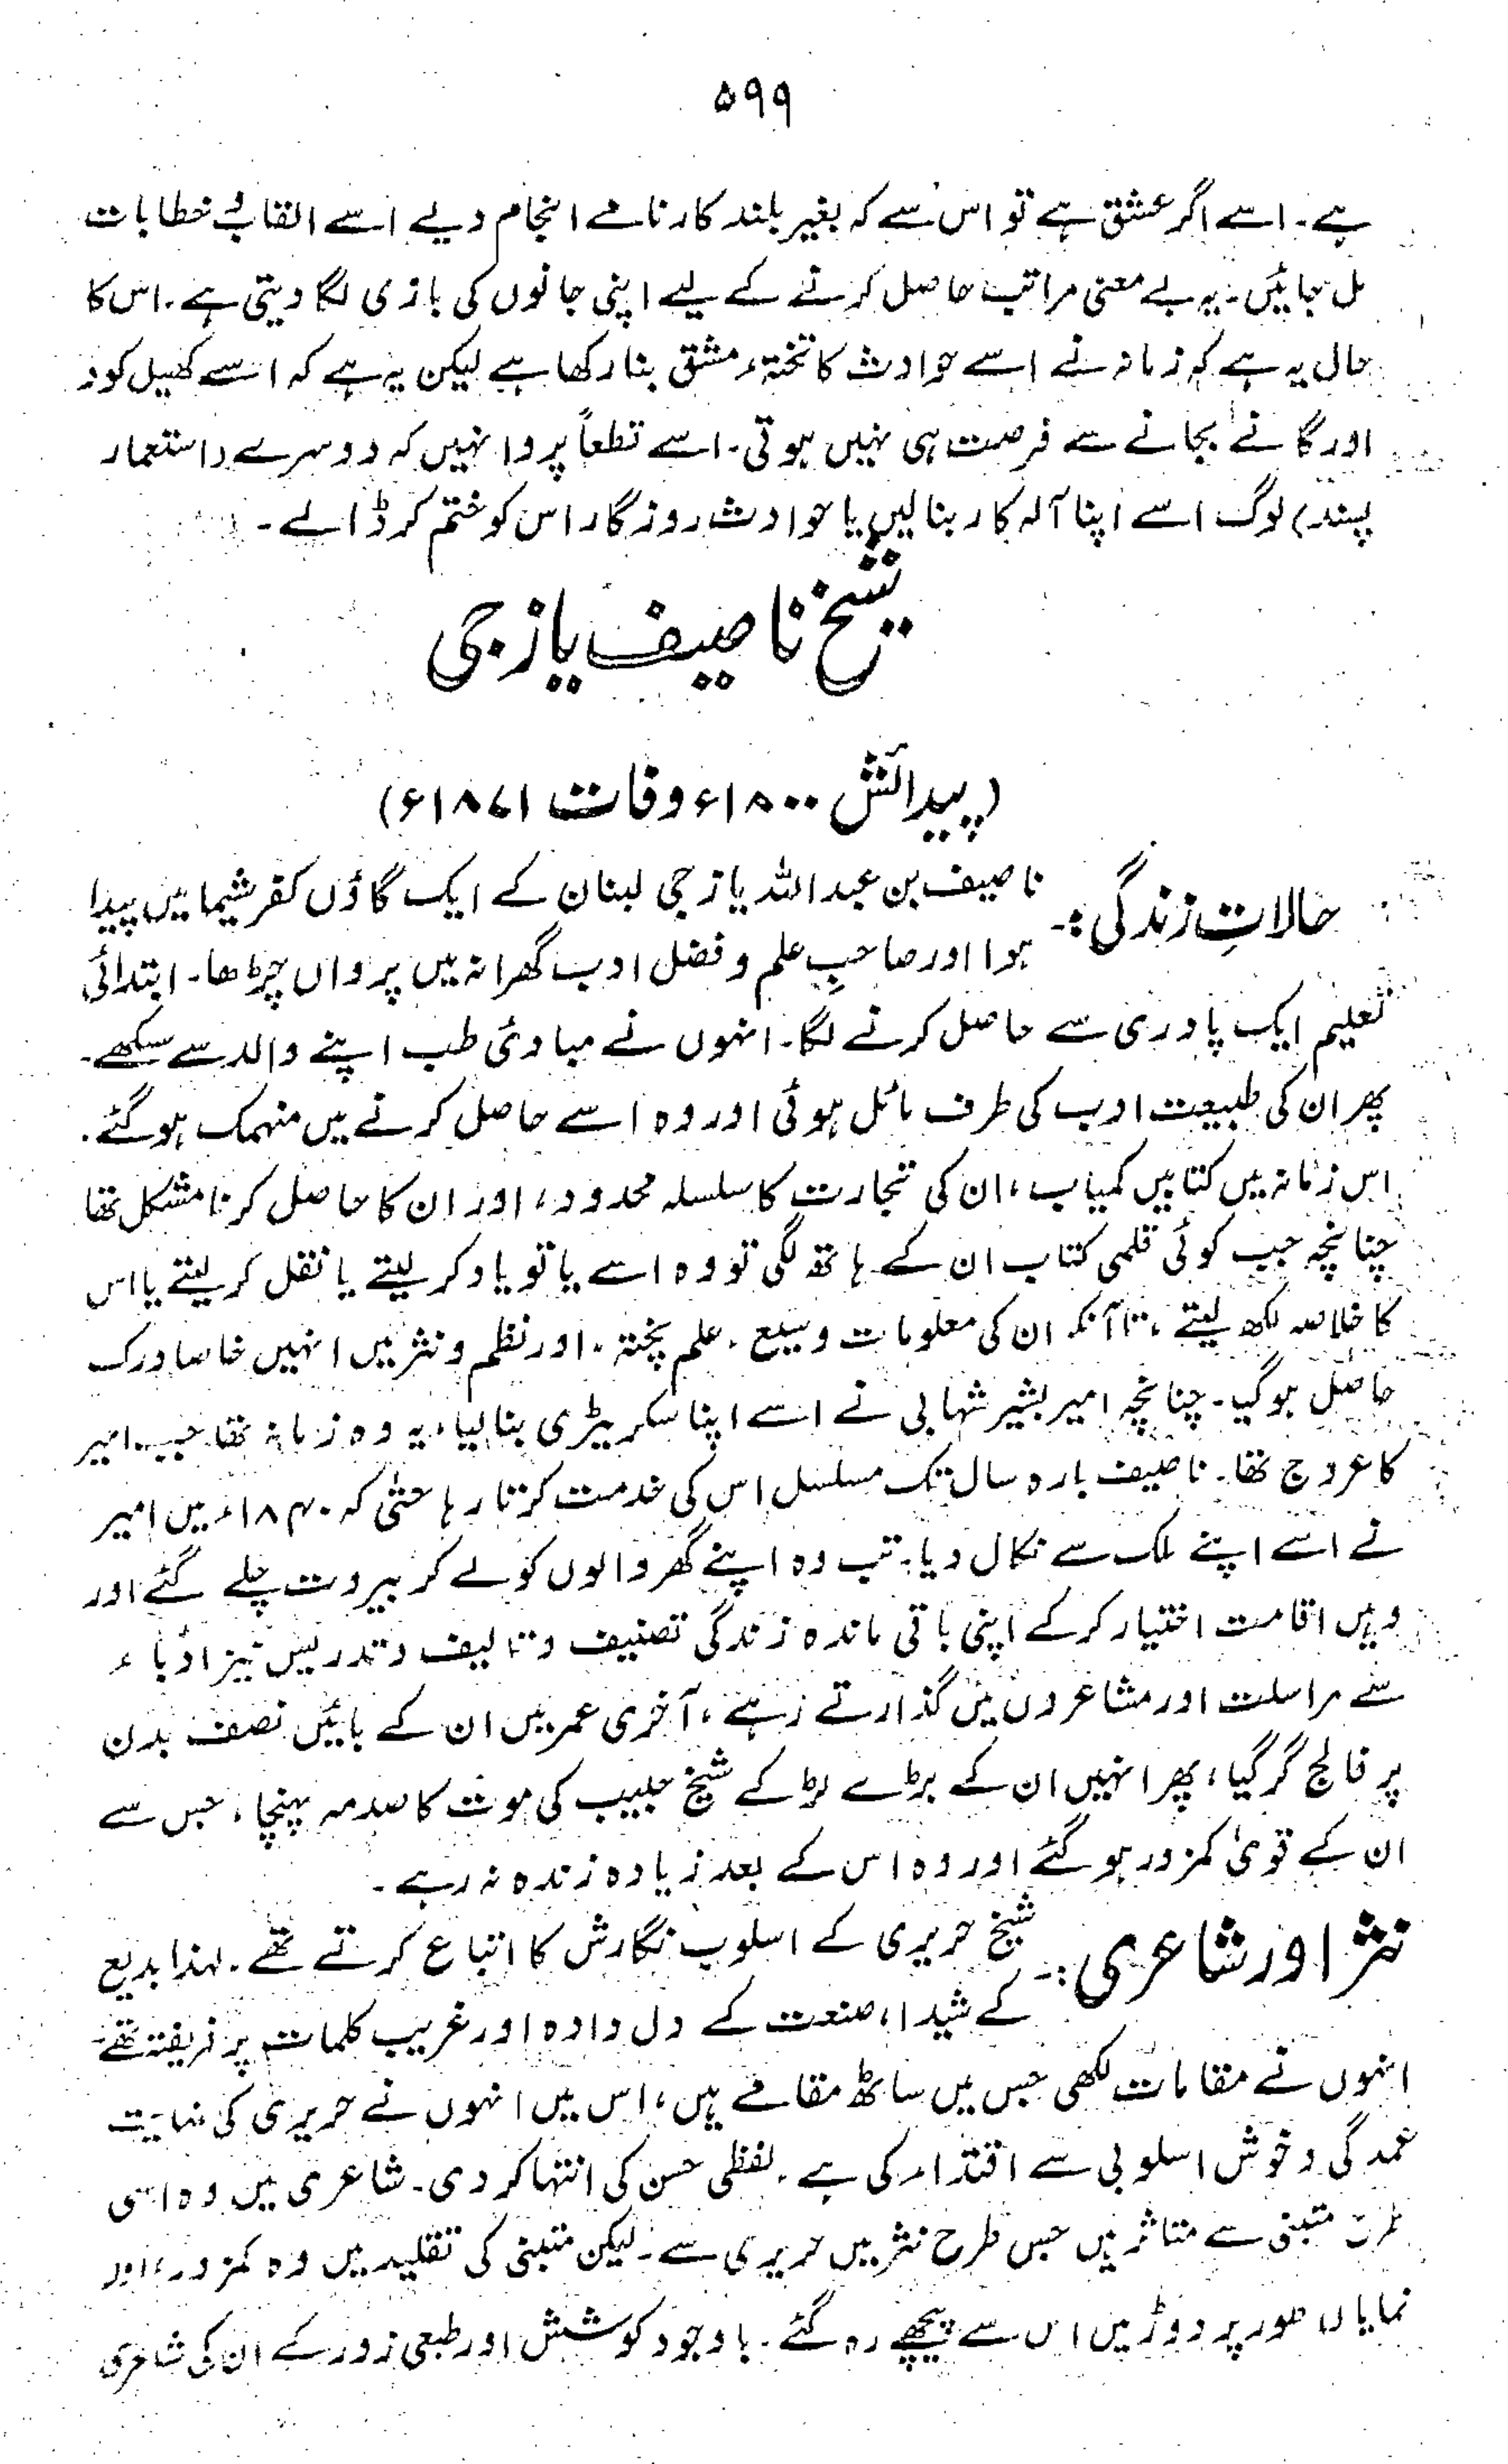 ۵۹۹
ہے۔ اسے اگر عشق ہے تو اس سے کہ بغیر بلند کارنامے انجام دیے اسے القاب و خطابات
مل جائیں۔ یہ بے معنی مراتب حاصل کرنے کے لیے اپنی جانوں کی بازی لگا دیتی ہے۔ اس کا
حال یہ ہے کہ زمانہ نے اسے حوادث کا تختۂ مشق بنا رکھا ہے لیکن یہ ہے کہ اسے کھیل کود
اور گانے بجانے سے فرصت ہی نہیں ہوتی۔ اسے قطعاً پروا نہیں کہ دوسرے (استعمار
پسند) لوگ اسے اپنا آلہ کار بنا لیں یا حوادث روزگار اس کو ختم کر ڈالے۔
شیخ ناصیف یازجی
(پیدائش ۱۸۰۰ء وفات ۱۸۷۱ء)
حالاتِ زندگی:۔ ناصیف بن عبداللہ یازجی لبنان کے ایک گاؤں کفر شیما میں پیدا
ہوا اور صاحبِ علم و فضل ادب گھرانہ میں پروان چڑھا۔ ابتدائی
تعلیم ایک پادری سے حاصل کرنے لگا۔ انہوں نے مبادئ طب اپنے والد سے سکھے۔
پھر ان کی طبیعت ادب کی طرف مائل ہوئی اور وہ اسے حاصل کرنے میں منہمک ہو گئے۔
اس زمانہ میں کتابیں کمیاب، ان کی تجارت کا سلسلہ محدود، اور ان کا حاصل کرنا مشکل تھا
چنانچہ جب کوئی قلمی کتاب ان کے ہاتھ لگی تو وہ اسے یا تو یاد کر لیتے یا نقل کر لیتے یا اس
کا خلاصہ لکھ لیتے، تا آنکہ ان کی معلومات وسیع، علم پختہ، اور نظم و نثر میں انہیں خاصا درک
حاصل ہو گیا۔ چنانچہ امیر بشیر شہابی نے اسے اپنا سکریٹری بنا لیا، یہ وہ زمانہ تھا جب امیر
کا عروج تھا۔ ناصیف بارہ سال تک مسلسل اس کی خدمت کرتا رہا حتیٰ کہ ۱۸۴۰ء میں امیر
نے اسے اپنے ملک سے نکال دیا۔ تب وہ اپنے گھر والوں کو لے کر بیروت چلے گئے اور
وہیں اقامت اختیار کر کے اپنی باقی ماندہ زندگی تصنیف و تالیف و تدریس نیز ادباء
سے مراسلت اور مشاعروں میں گذارتے رہے، آخری عمر میں ان کے بائیں نصف بدن
پر فالج گر گیا، پھر انہیں ان کے بڑے لڑکے شیخ حبیب کی موت کا صدمہ پہنچا، جس سے
ان کے قویٰ کمزور ہو گئے اور وہ اس کے بعد زیادہ زندہ نہ رہے۔
نثر اور شاعری:۔ شیخ حریری کے اسلوب نگارش کا اتباع کرتے تھے۔ لہذا بدیع
کے شیدا، صنعت کے دل دادہ اور غریب کلمات پر فریفتہ تھے۔
انہوں نے مقامات لکھی جس میں ساٹھ مقامے ہیں، اس میں انہوں نے حریری کی نہایت
عمدگی و خوش اسلوبی سے اقتداء کی ہے۔ لفظی حسن کی انتہا کر دی۔ شاعری میں وہ اسی
طرح متبنی سے متاثر ہیں جس طرح نثر میں حریری سے۔ لیکن متبنی کی تقلید میں وہ کمزور، اور
نمایاں طور پر دوڑ میں اس سے پیچھے رہ گئے۔ باوجود کوشش اور طبعی زور کے ان کی شاعری